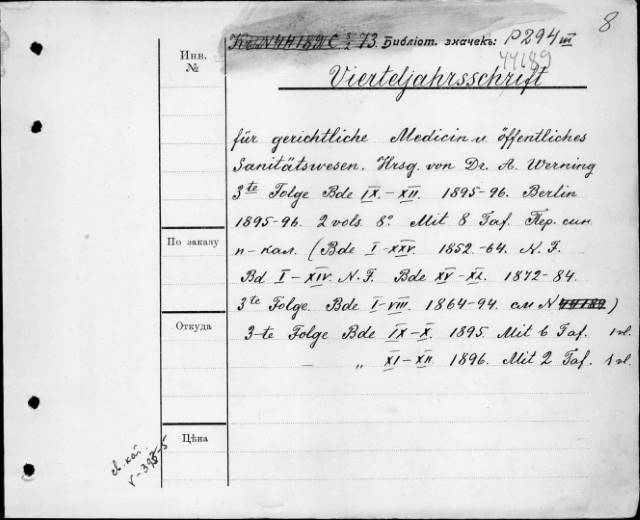 8
Инв. №
К. N 44189 C 5/2 73. Библіот. значекъ: P294 III
44189
Vierteljahrsschrift
für gerichtliche Medicin u. öffentliches
Sanitätswesen. Hrsg. von Dr. A. Werning
3te Folge Bde IX.-XII. 1895-96. Berlin
1895-96. 2 vols. 8º. Mit 8 Taf. Пер. син.
По заказу
п-кал. (Bde I-XXV. 1852-64. N. F.
Bd I-XIV. N. F. Bde XV-XL. 1872-84.
3te Folge. Bde I-VIII. 1864-94. см N 44189)
Откуда
3-te Folge Bde IX-X. 1895. Mit 6 Taf. 1 vl.
— „ XI-XII 1896. Mit 2 Taf. 1 vl.
Цѣна
V-395-5